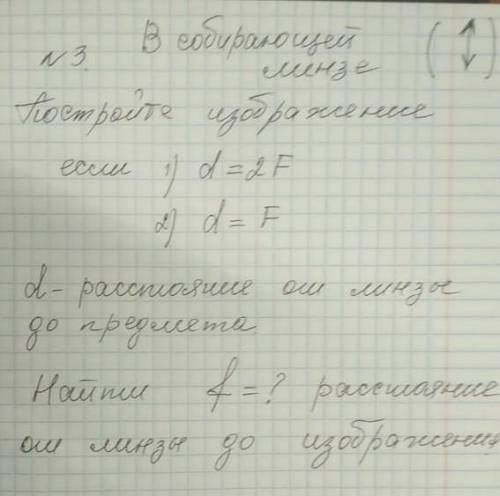 N3. В собирающей
линзе ( ↕ )
Постройте изображение
если 1) d = 2F
2) d = F
d - расстояние от линзы
до предмета
Найти f = ? расстояние
от линзы до изображения